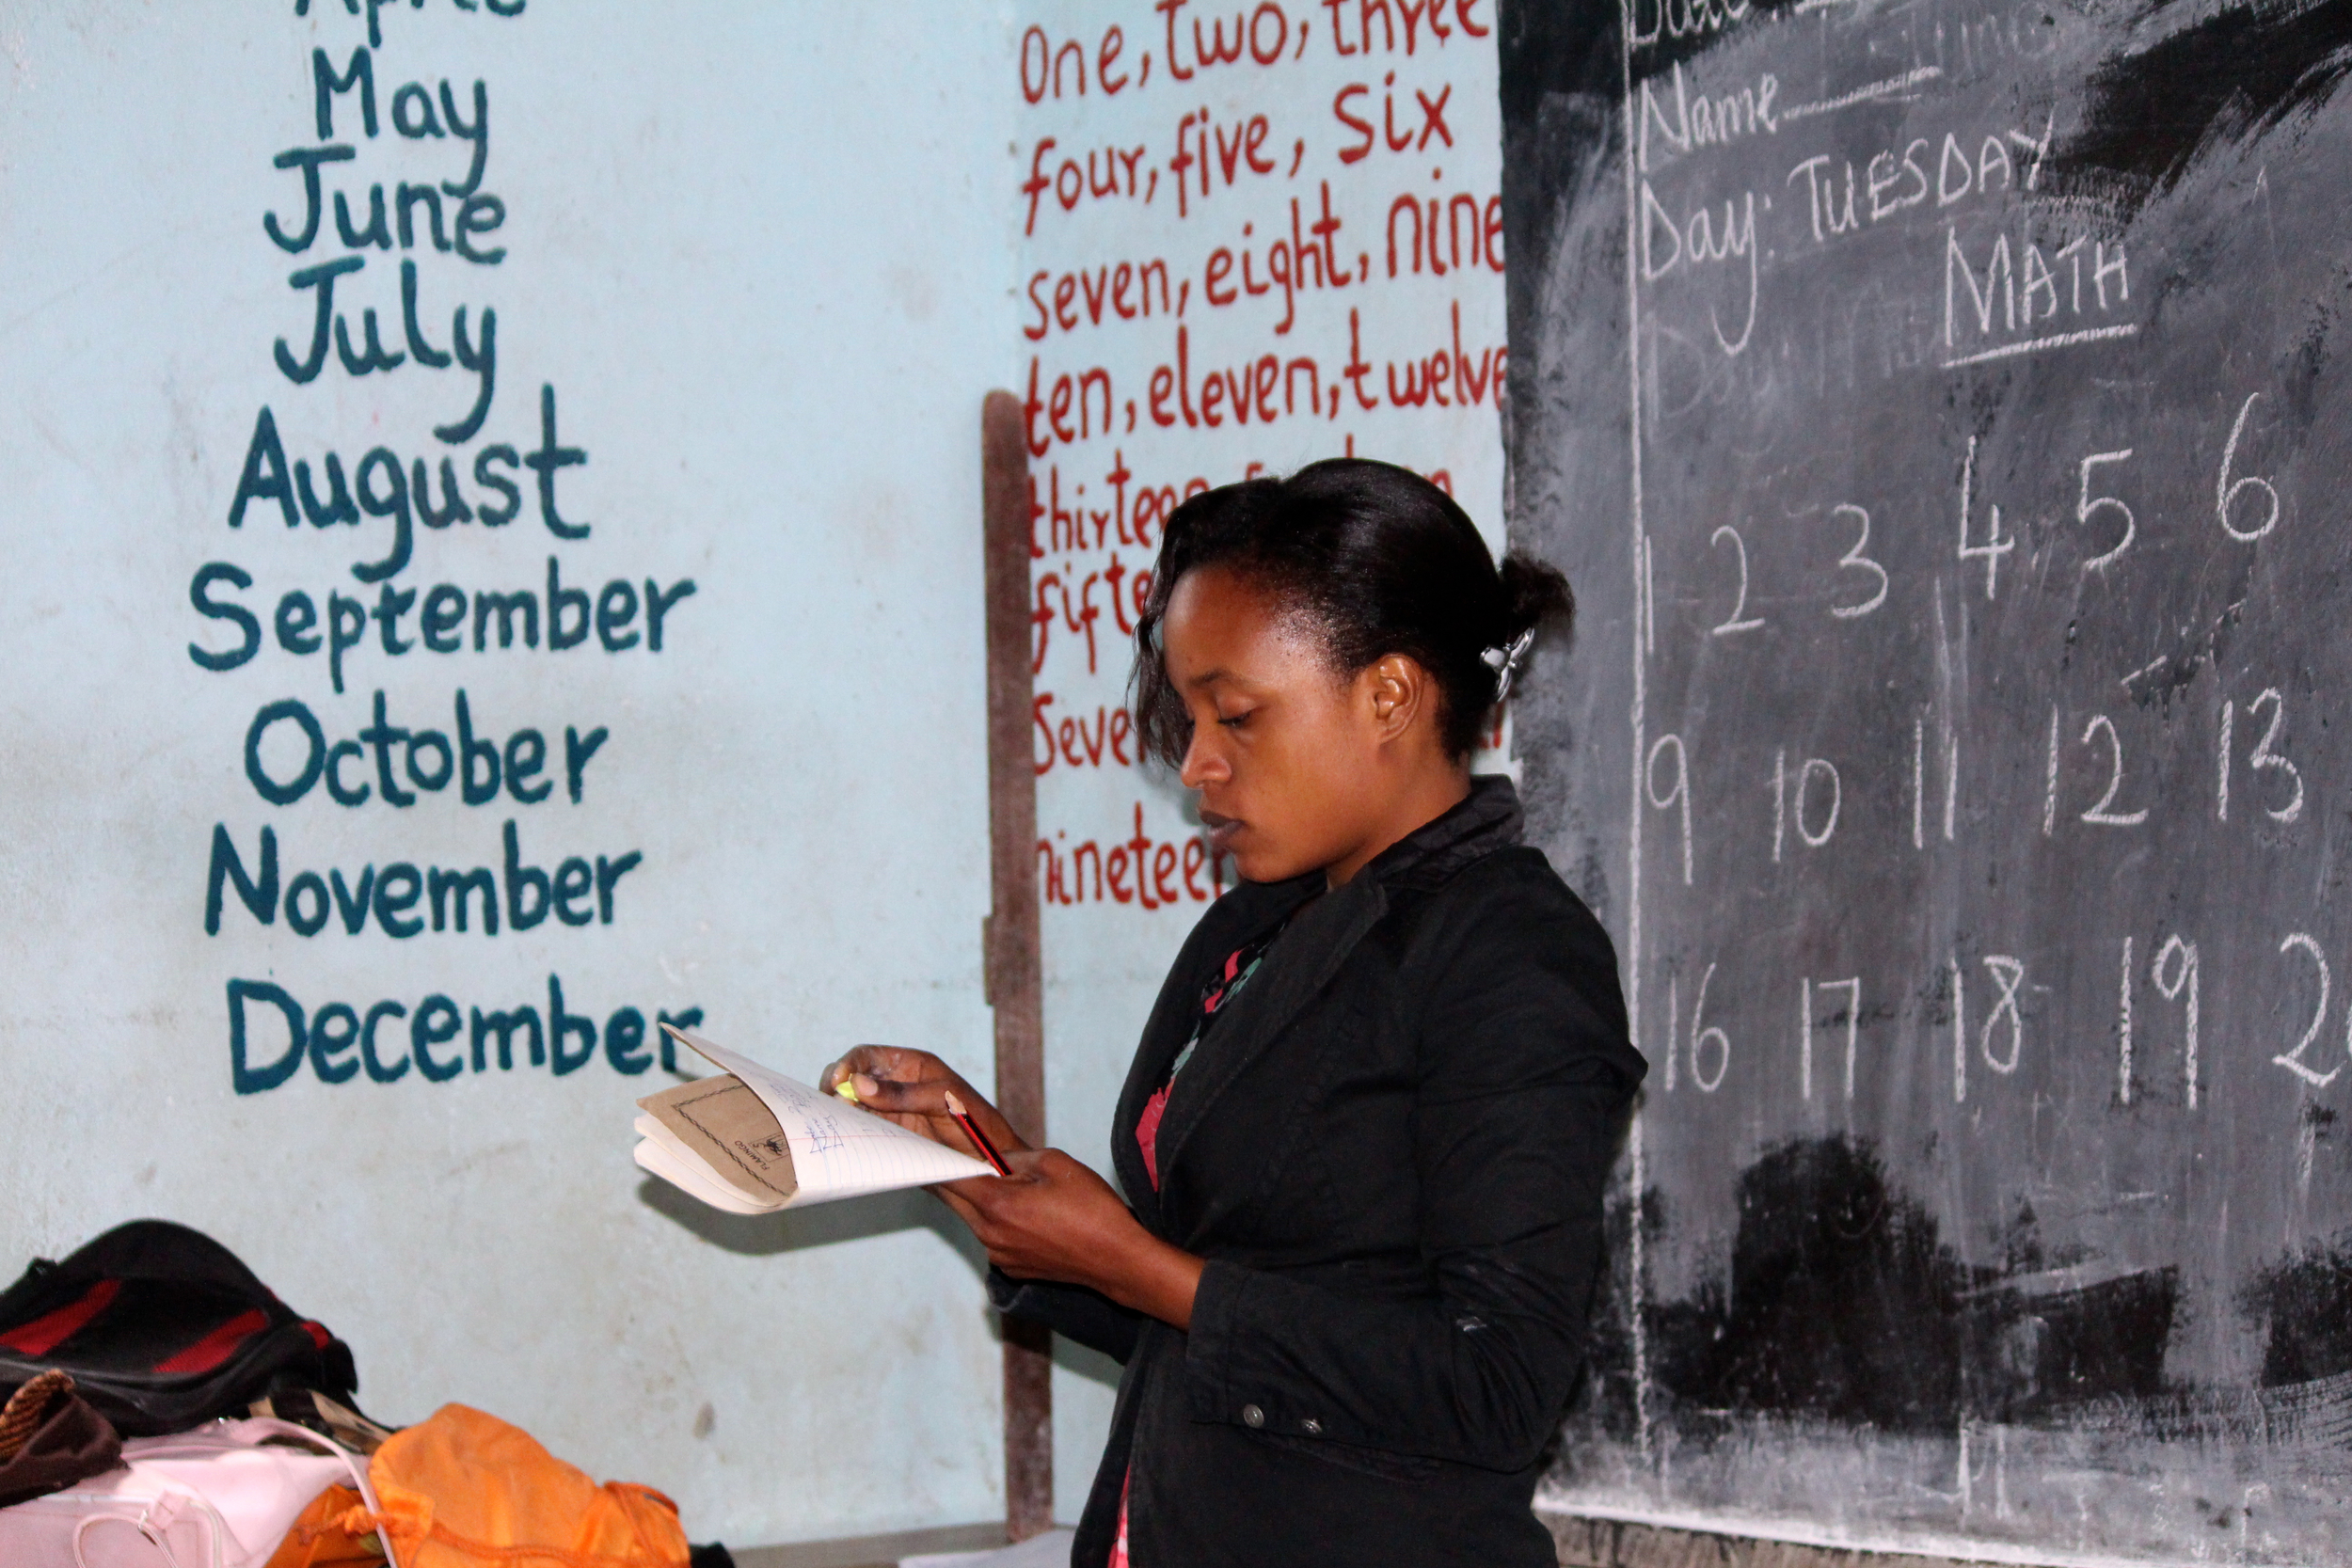 May
June
July
August
September
October
November
December
One, two, three
four, five, six
seven, eight, nine
ten, eleven, twelve
nineteen
Name
Day: TUESDAY
MATH
1 2 3 4 5 6
9 10 11 12 13
16 17 18 19
FLAMINGO